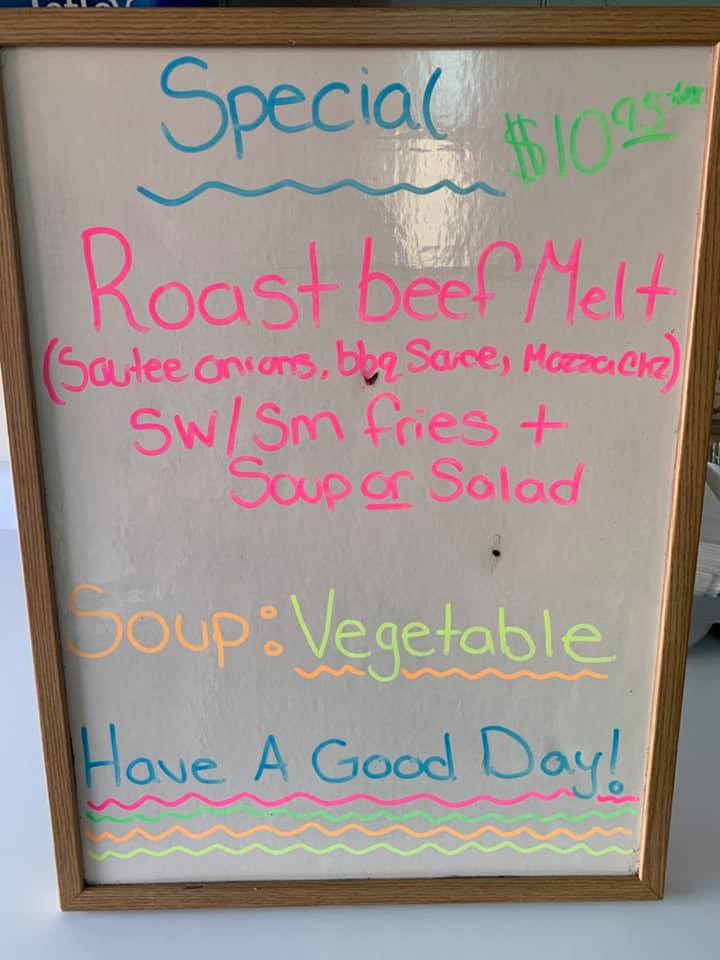 Special
$10.95 +tax
Roast beef Melt
(Sautee onions, bbq Sauce, Mozza Chz)
SW/Sm fries +
Soup or Salad
Soup: Vegetable
Have A Good Day!